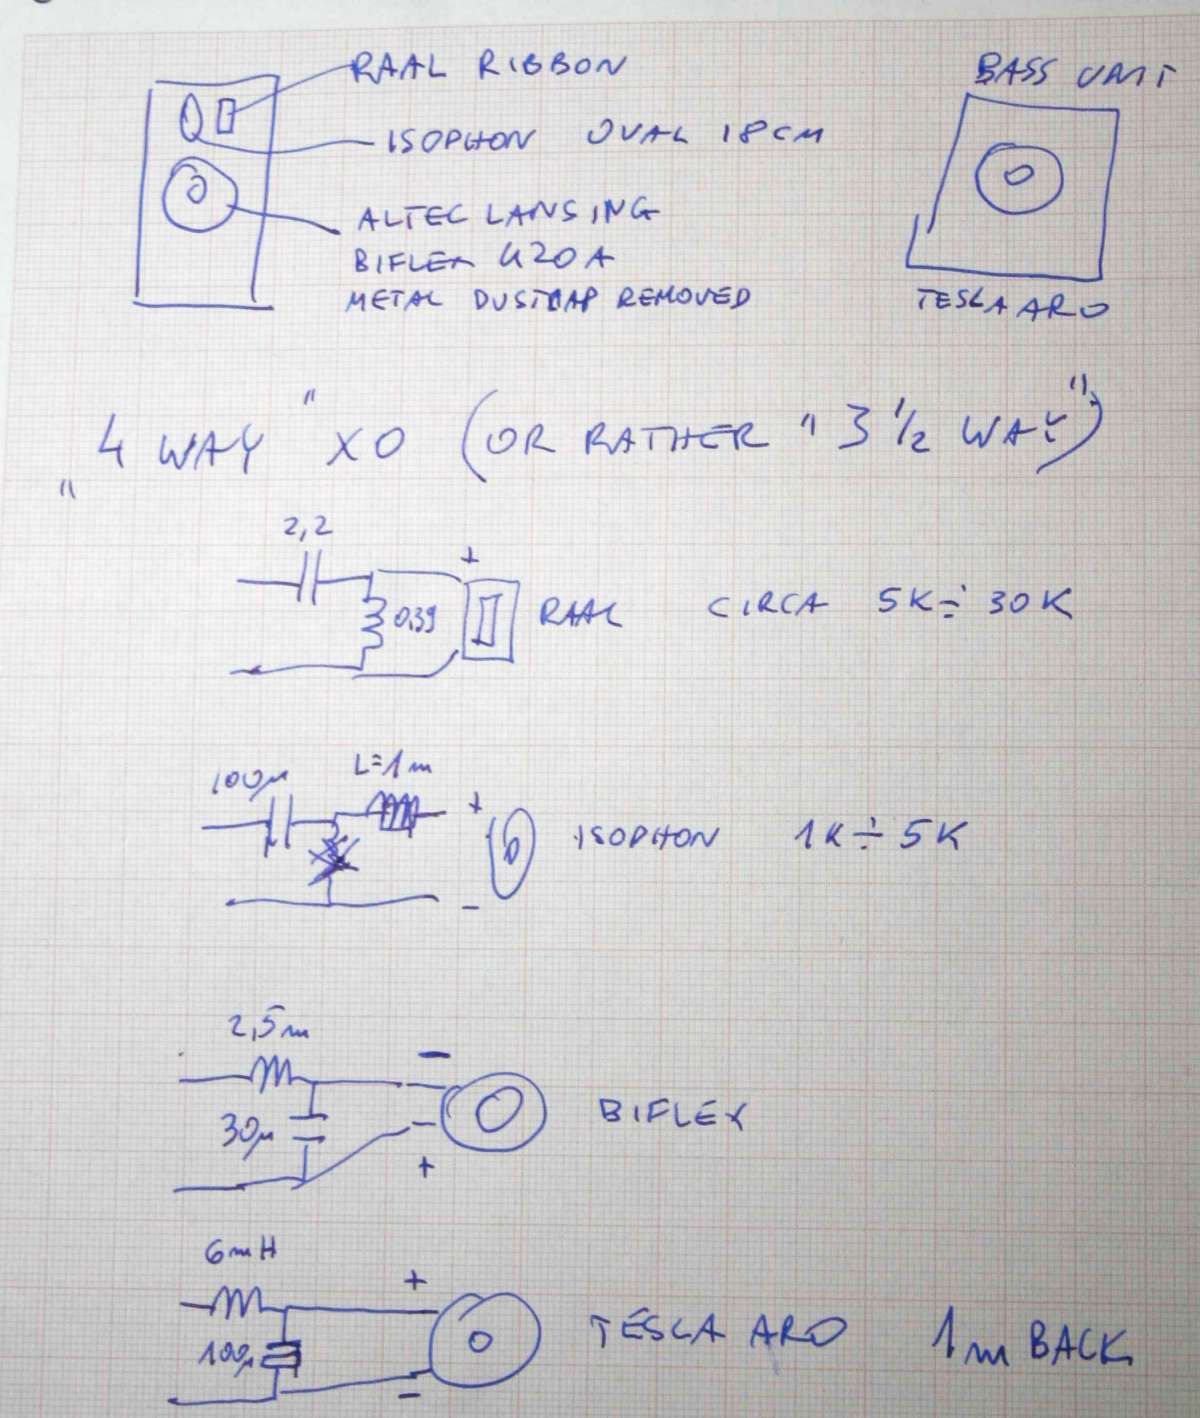 RAAL RIBBON
BASS UNIT
ISOPHON OVAL 18CM
ALTEC LANSING
BIFLEX 420A
METAL DUSTCAP REMOVED
TESLA ARO
"4 WAY" XO (OR RATHER "3 1/2 WAY")
2,2
+
0,39
RAAL CIRCA 5K÷30K
100µ
L=1m
+
ISOPHON 1K÷5K
-
2,5m
-
30µ
BIFLEX
-
+
6mH
+
100µ
TESLA ARO 1m BACK
-